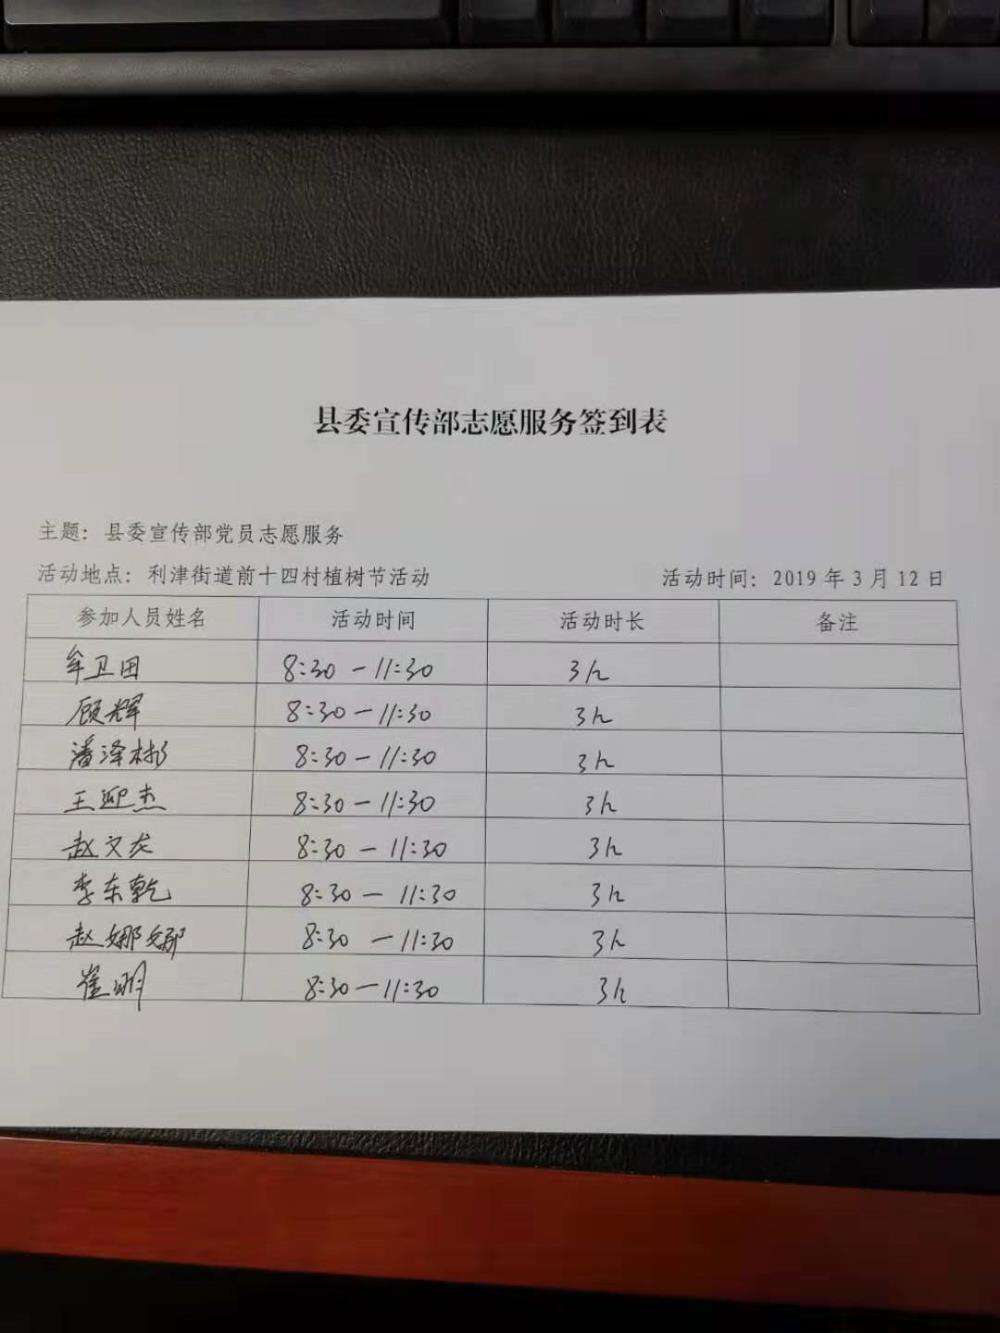 县委宣传部志愿服务签到表
主题：县委宣传部党员志愿服务
活动地点：利津街道前十四村植树节活动 活动时间：2019年3月12日
参加人员姓名 活动时间 活动时长 备注
牟卫田 8:30-11:30 3h
顾辉 8:30-11:30 3h
潘泽彬 8:30-11:30 3h
王迎杰 8:30-11:30 3h
赵文龙 8:30-11:30 3h
李东乾 8:30-11:30 3h
赵娜娜 8:30-11:30 3h
崔明 8:30-11:30 3h